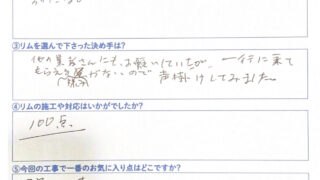 ③リムを選んで下さった決め手は?
他の業者さんにも、お願いしていたが、一向に来て
もらえる様子がないので 声掛けしてみました。
④リムの施工や対応はいかがでしたか?
100点
⑤今回の工事で一番のお気に入り点はどこですか?